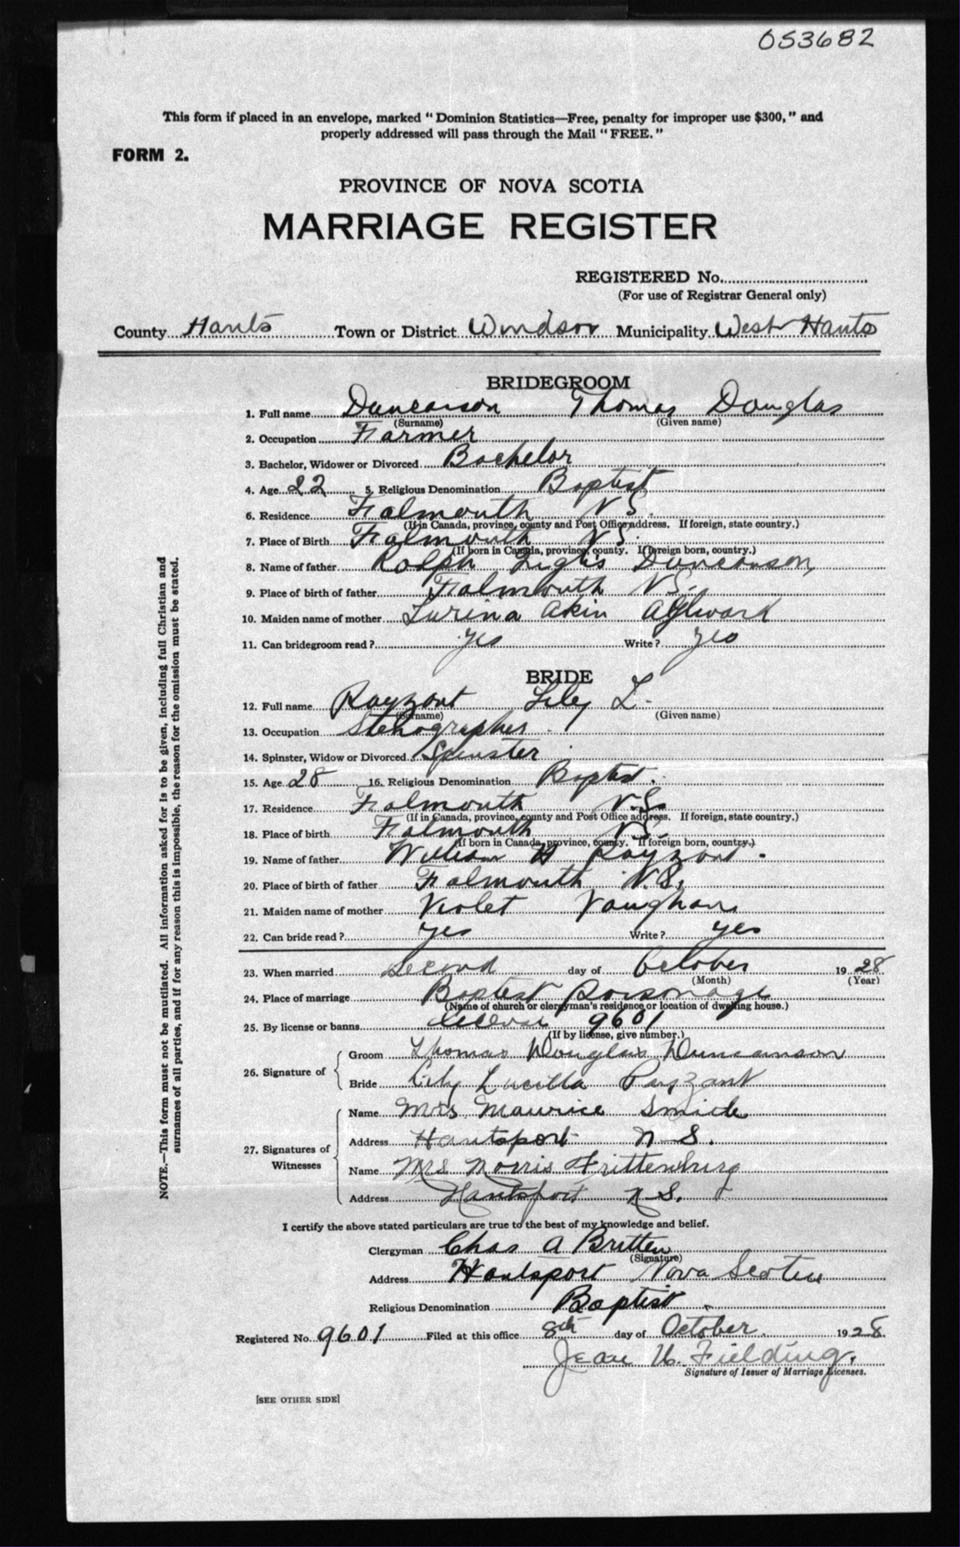 053682
This form if placed in an envelope, marked "Dominion Statistics—Free, penalty for improper use $300," and
properly addressed will pass through the Mail "FREE."
FORM 2.
PROVINCE OF NOVA SCOTIA
MARRIAGE REGISTER
REGISTERED No.
(For use of Registrar General only)
County Hants Town or District Windsor Municipality West Hants
BRIDEGROOM
1. Full name Duncanson Thomas Douglas
(Surname) (Given name)
2. Occupation Farmer
3. Bachelor, Widower or Divorced Bachelor
4. Age 22 5. Religious Denomination Baptist
6. Residence Falmouth N S.
(If in Canada, province, county and Post Office address. If foreign, state country.)
7. Place of Birth Falmouth N S.
(If born in Canada, province, county. If foreign born, country.)
8. Name of father Ralph Duncanson
9. Place of birth of father Falmouth N S.
10. Maiden name of mother Lurina Akin Aylward
11. Can bridegroom read? yes Write? yes
BRIDE
12. Full name Payzant Lily L.
(Surname) (Given name)
13. Occupation Stenographer
14. Spinster, Widow or Divorced Spinster
15. Age 28 16. Religious Denomination Baptist.
17. Residence Falmouth N.S.
(If in Canada, province, county and Post Office address. If foreign, state country.)
18. Place of birth Falmouth N S.
(If born in Canada, province, county. If foreign born, country.)
19. Name of father William H Payzant.
20. Place of birth of father Falmouth N.S.
21. Maiden name of mother Violet Vaughan
22. Can bride read? yes Write? yes
23. When married Second day of October 1928
(Month) (Year)
24. Place of marriage Baptist Parsonage
(Name of church or clergyman's residence or location of dwelling house.)
25. By license or banns License 9601
(If by license, give number.)
26. Signature of
Groom Thomas Douglas Duncanson
Bride Lily Lucilla Payzant
27. Signatures of Witnesses
Name Mrs Maurice Smith
Address Hantsport N S.
Name Mrs Morris
Address Hantsport N.S.
I certify the above stated particulars are true to the best of my knowledge and belief.
Clergyman Chas A Britten
(Signature)
Address Hantsport Nova Scotia
Religious Denomination Baptist.
Registered No. 9601 Filed at this office 8th day of October. 1928
Jean W. Fielding.
Signature of Issuer of Marriage Licenses.
[SEE OTHER SIDE]
NOTE.—This form must not be mutilated. All information asked for is to be given, including full Christian and
surnames of all parties, and if for any reason this is impossible, the reason for the omission must be stated.